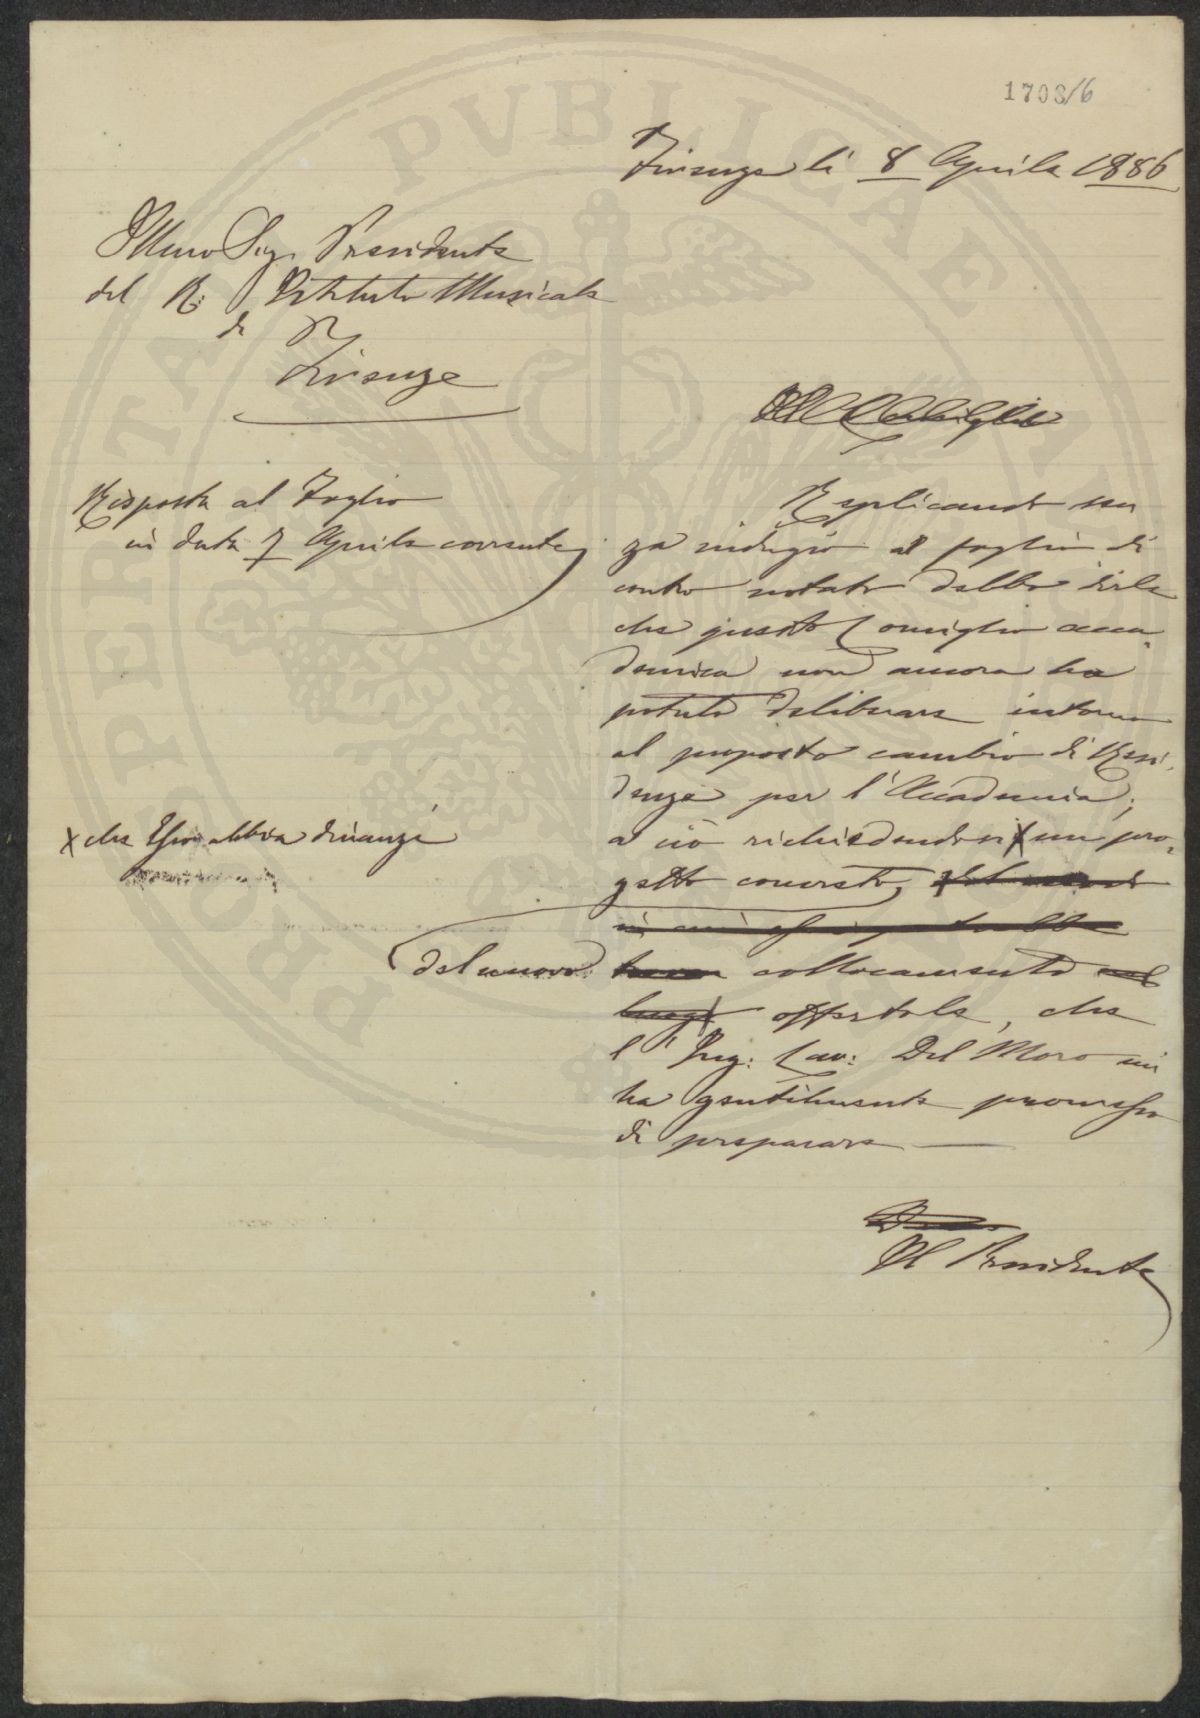 1708/6
Firenze li 8 Aprile 1886
Illmo Sig. Presidente
del R: Istituto Musicale
di
Firenze
Risposta al Foglio
in data 7 Aprile corrente
Replicando sen
za indugio al foglio di
contro notato debbo dirle
che questo Consiglio acca
demico non ancora ha
potuto deliberare intorno
al proposto cambio di Resi
denza per l'Accademia;
a ciò richiedendosi x un pro
getto concreto,
x che Esso abbia dinanzi
del nuovo collocamento
offertole, che
l'Ing: Cav: Del Moro mi
ha gentilmente promesso
di preparare —
Il Presidente
PERITA PVBLICAE